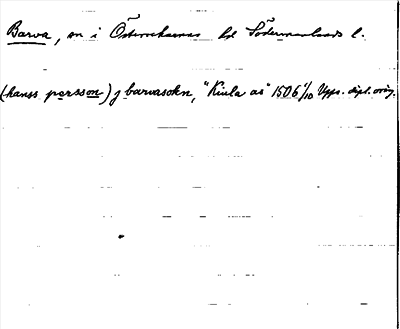 Barva, sn i Österrekarnes hd Södermanlands l.
(hanss persson) j barvasokn, "Kiula as" 1506 1/10 Upps. dipl. orig.